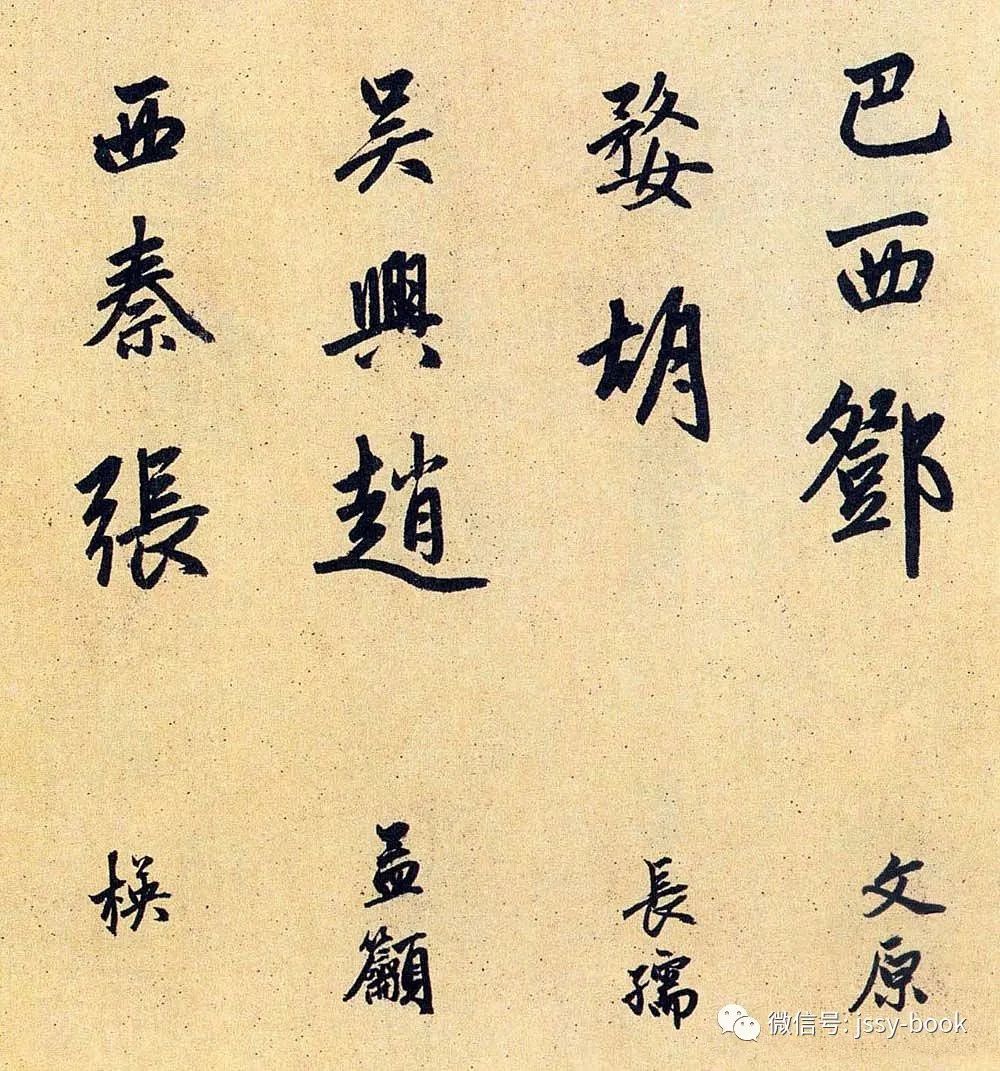 巴西鄧 文原
婺胡 長孺
吴興趙 孟籲
西秦張 楧
微信号: jssy-book